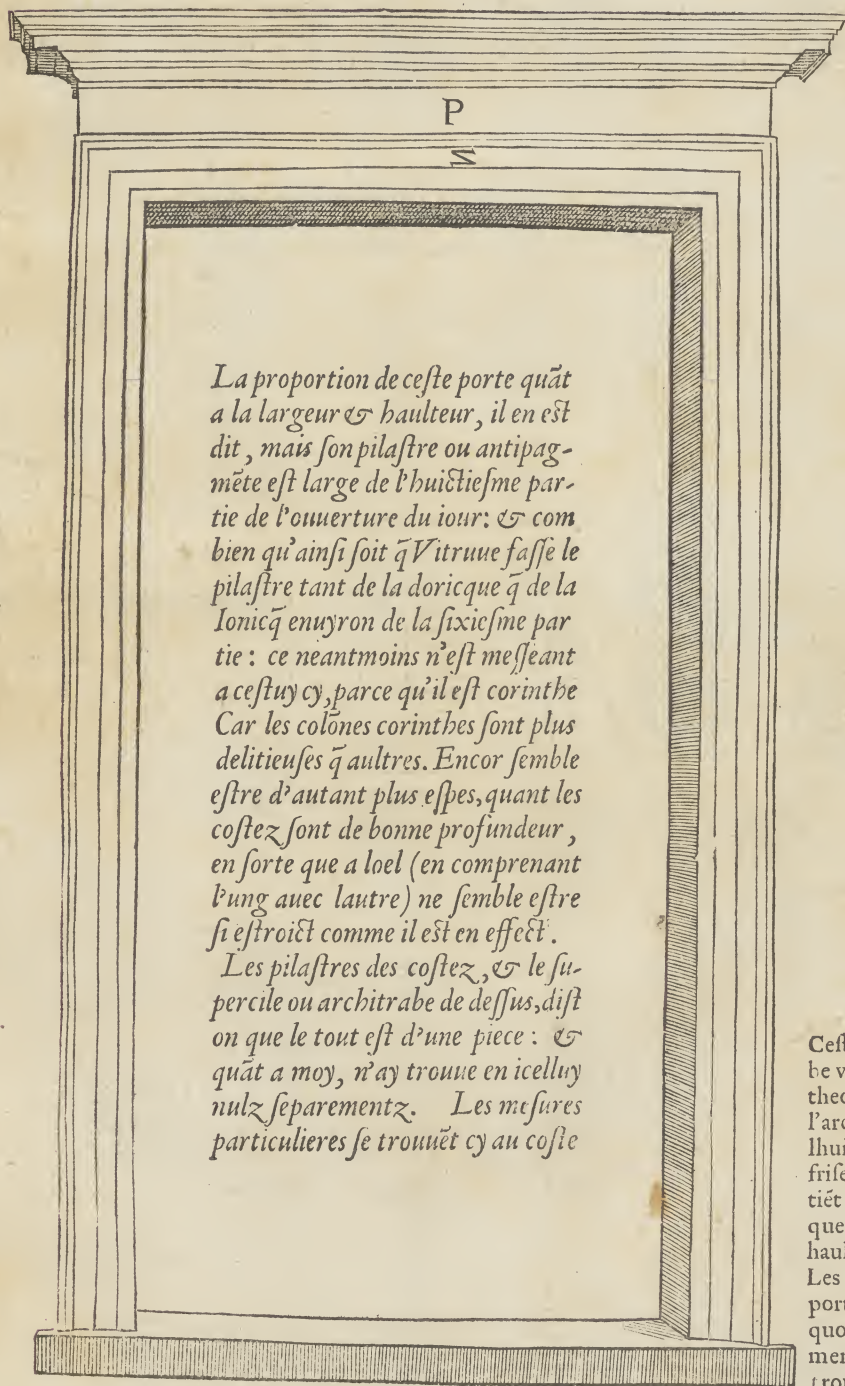 P
N
La proportion de ceſte porte quãt
a la largeur & haulteur, il en eſt
dit, mais ſon pilaſtre ou antipag-
mẽte eſt large de l'huictieſme par-
tie de l'ouuerture du iour: & com
bien qu'ainſi ſoit q̃ Vitruue faſſe le
pilaſtre tant de la doricque q̃ de la
Ionicq̃ enuyron de la ſixieſme par
tie : ce neantmoins n'eſt meſſeant
a ceſtuy cy, parce qu'il eſt corinthe
Car les colõnes corinthes ſont plus
delitieuſes q̃ aultres. Encor ſemble
eſtre d'autant plus eſpes, quant les
coſtez ſont de bonne profundeur,
en ſorte que a loel (en comprenant
l'ung auec lautre) ne ſemble eſtre
ſi eſtroict comme il eſt en effect.
Les pilaſtres des coſtez, & le ſu-
percile ou architrabe de deſſus, diſt
on que le tout eſt d'une piece : &
quãt a moy, n'ay trouue en icelluy
nulz ſeparementz. Les meſures
particulieres ſe trouuẽt cy au coſte
Ceſt
be v
theo
l'arc
lhui
friſe
tiẽt
que
haul
Les
port
quo
mer
trou